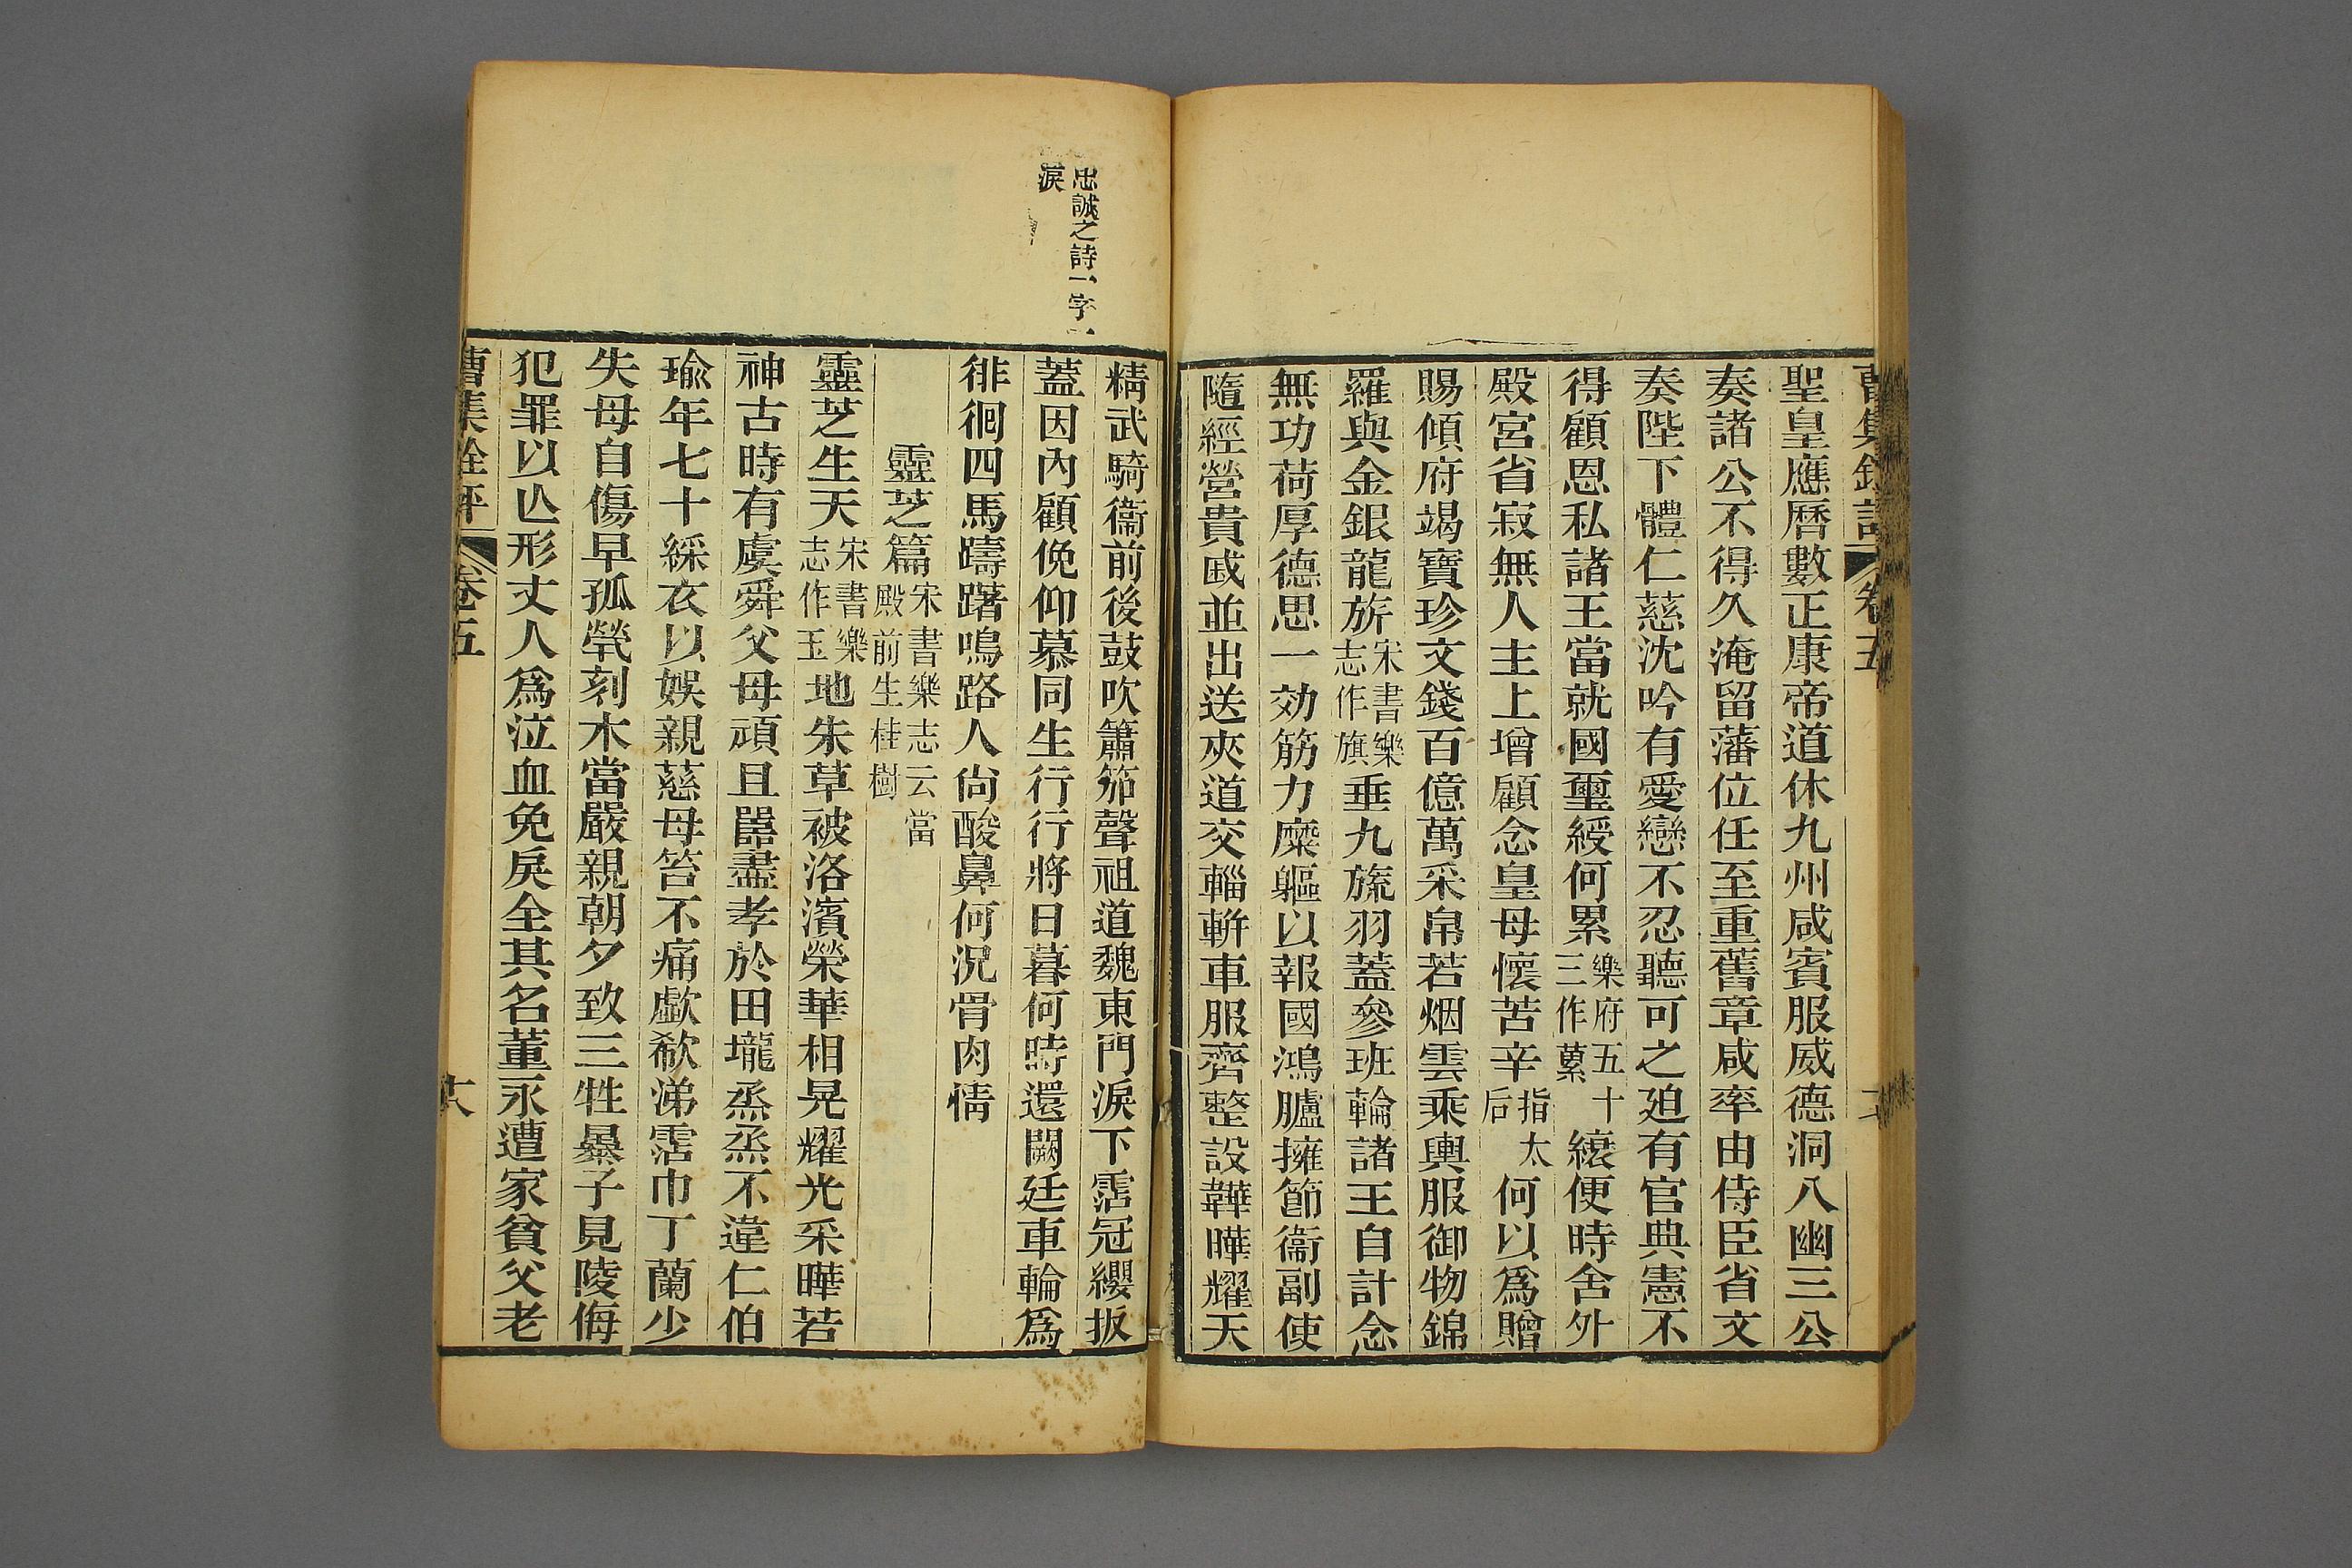 曹集銓評 卷五
聖皇應曆數正康帝道休九州咸賓服威德洞八幽三公
奏諸公不得久淹留藩位任至重舊章咸率由侍臣省文
奏陛下體仁慈沈吟有愛戀不忍聽可之迫有官典憲不
得顧恩私諸王當就國璽綬何累樂府五十三作蔂縗便時舍外
殿宮省寂無人主上增顧念皇母懷苦辛指太后何以爲贈
賜傾府竭寶珍文錢百億萬采帛若烟雲乘輿服御物錦
羅與金銀龍旂宋書樂志作旗垂九旒羽蓋參班輪諸王自計念
無功荷厚德思一効筋力糜軀以報國鴻臚擁節衞副使
隨經營貴戚並出送夾道交輜軿車服齊整設韡曄耀天
忠誠之詩一字一
淚
精武騎衞前後鼓吹簫笳聲祖道魏東門淚下霑冠纓扳
蓋因內顧俛仰慕同生行行將日暮何時還闕廷車輪爲
徘徊四馬躊躇鳴路人尙酸鼻何況骨肉情
靈芝篇宋書樂志云當殿前生桂樹
靈芝生天宋書樂志作玉地朱草被洛濱榮華相晃耀光采曄若
神古時有虞舜父母頑且嚚盡孝於田壠烝烝不違仁伯
瑜年七十綵衣以娛親慈母笞不痛歔欷涕霑巾丁蘭少
失母自傷早孤煢刻木當嚴親朝夕致三牲暴子見陵侮
犯罪以亾形丈人爲泣血免戾全其名董永遭家貧父老
曹集銓評 卷五 十八